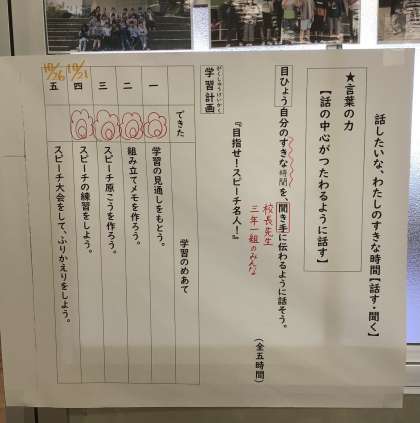 話したいな、わたしのすきな時間【話す・聞く】
★言葉の力
【話の中心がつたわるように話す】
目ひょう 自分のすきな時間を、聞き手に伝わるように話そう。
校長先生
三年一組のみんな
『目指せ!スピーチ名人!』
(全五時間)
がくしゅうけいかく
学習計画
できた 学習のめあて
一 学習の見通しをもとう。
二 組み立てメモを作ろう。
三 スピーチ原こうを作ろう。
四 スピーチの練習をしよう。
10/21
五 スピーチ大会をして、ふりかえりをしよう。
10/26